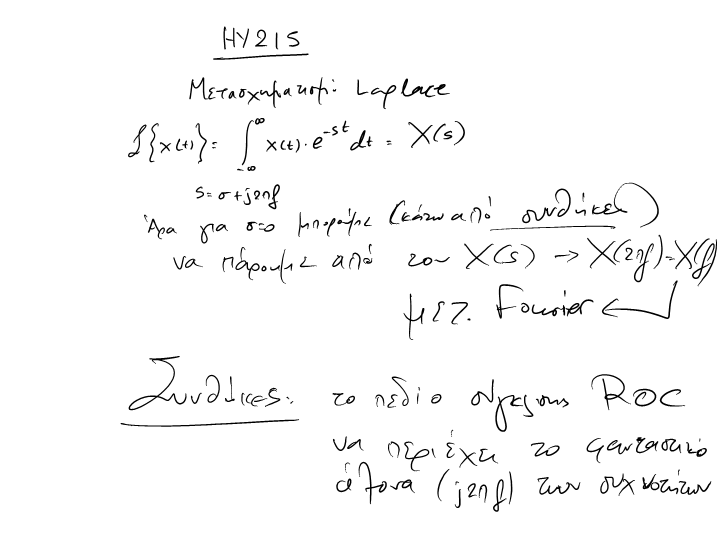 HY215
Μετασχηματισμ: Laplace
L{x(t)} = ∫_{-∞}^{∞} x(t)·e^{-st} dt = X(s)
s=σ+j2πf
Άρα για σ=0 μπορούμε (κάτω από συνθήκες)
να πάρουμε από τον X(s) → X(2πf)=X(f)
μετ. Fourier ←
Συνθήκες: το πεδίο σύγκλισης ROC
να περιέχει το φανταστικό
άξονα (j2πf) των συχνοτήτων